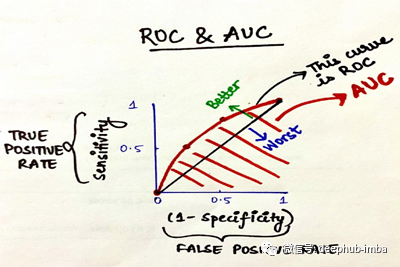 ROC & AUC
This curve
is ROC
AUC
Better
Worst
TRUE
POSITIVE
RATE
sensitivity
1
0.5
0
0.5
1
(1- specificity)
FALSE POSITIVE
微信号: deephub-imba